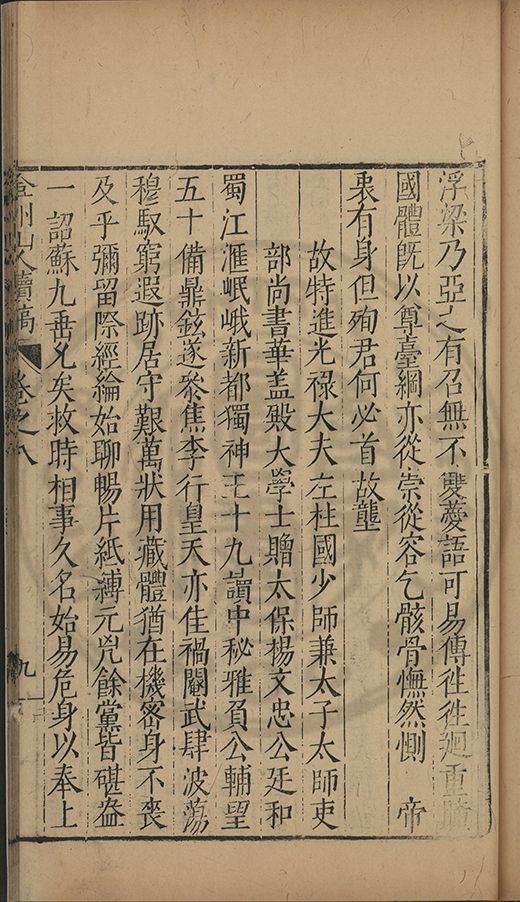 浮梁乃亞之有召無不雙薆語可易傳徃徃迴重
國體旣以尊臺綱亦從崇從容乞骸骨憮然惻　帝
衷有身但殉君何必首故壟
故特進光祿大夫左柱國少師兼太子太師吏
部尚書華蓋殿大學士贈太保楊文忠公廷和
蜀江滙岷峨新都獨神王十九讀中秘雅負公輔望
五十備鼎鉉遂叅焦李行皇天亦佳禍閹武肆波蕩
穆馭窮遐跡居守艱萬狀用藏體猶在機密身不喪
及乎彌留際經綸始聊暢片紙縛元兇餘黨皆碪盎
一　詔蘇九垂允矣救時相事久名始易危身以奉上
弇州山人續稿　卷之八　九